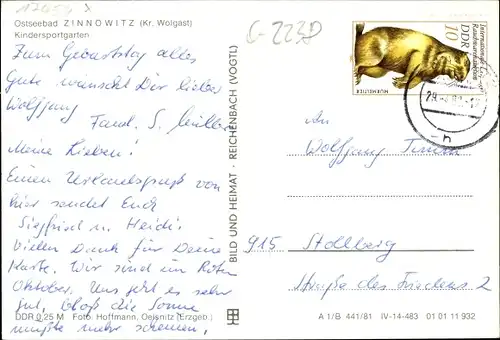 Ostseebad ZINNOWITZ (Kr. Wolgast)
Kindersportgarten
Zum Geburtstag alles
Gute wünscht Dir lieber
Wolfgang
Fam. S. Müller
Meine Lieben!
Einen Urlaubsgruß von
hier sendet Euch
Siegfried u. Heidi.
Vielen Dank für Deine
Karte. Wir sind im Roten
Oktober. Uns geht es sehr
gut, bloß die Sonne
müßte mehr scheinen.
DDR 0,25 M Foto: Hoffmann, Oelsnitz (Erzgeb.)
BILD UND HEIMAT · REICHENBACH (VOGTL)
G-2232
DDR
10
HUSMEILITER
An
Wolfgang
915 Stollberg
Straße des Friedens 2
A 1/B 441/81 IV-14-483 01 01 11 932